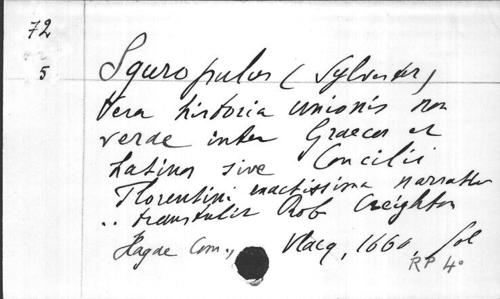 72
5
Sguropulus (Sylvester)
Vera historia unionis non
verae inter Graecos et
Latinos sive Concilii
Florentini exactissima narratio
.. transtulit Rob Creighton
Hagae Com., Vlacq, 1660 fol
RP 4°